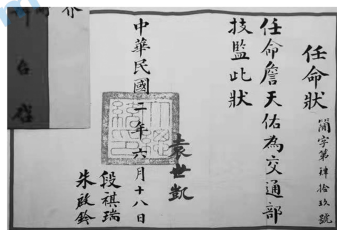 任命狀
簡字第肆拾玖號
任命詹天佑為交通部
技監此狀
中華民國二年六月十八日
袁世凱
段祺瑞
朱啟鈐